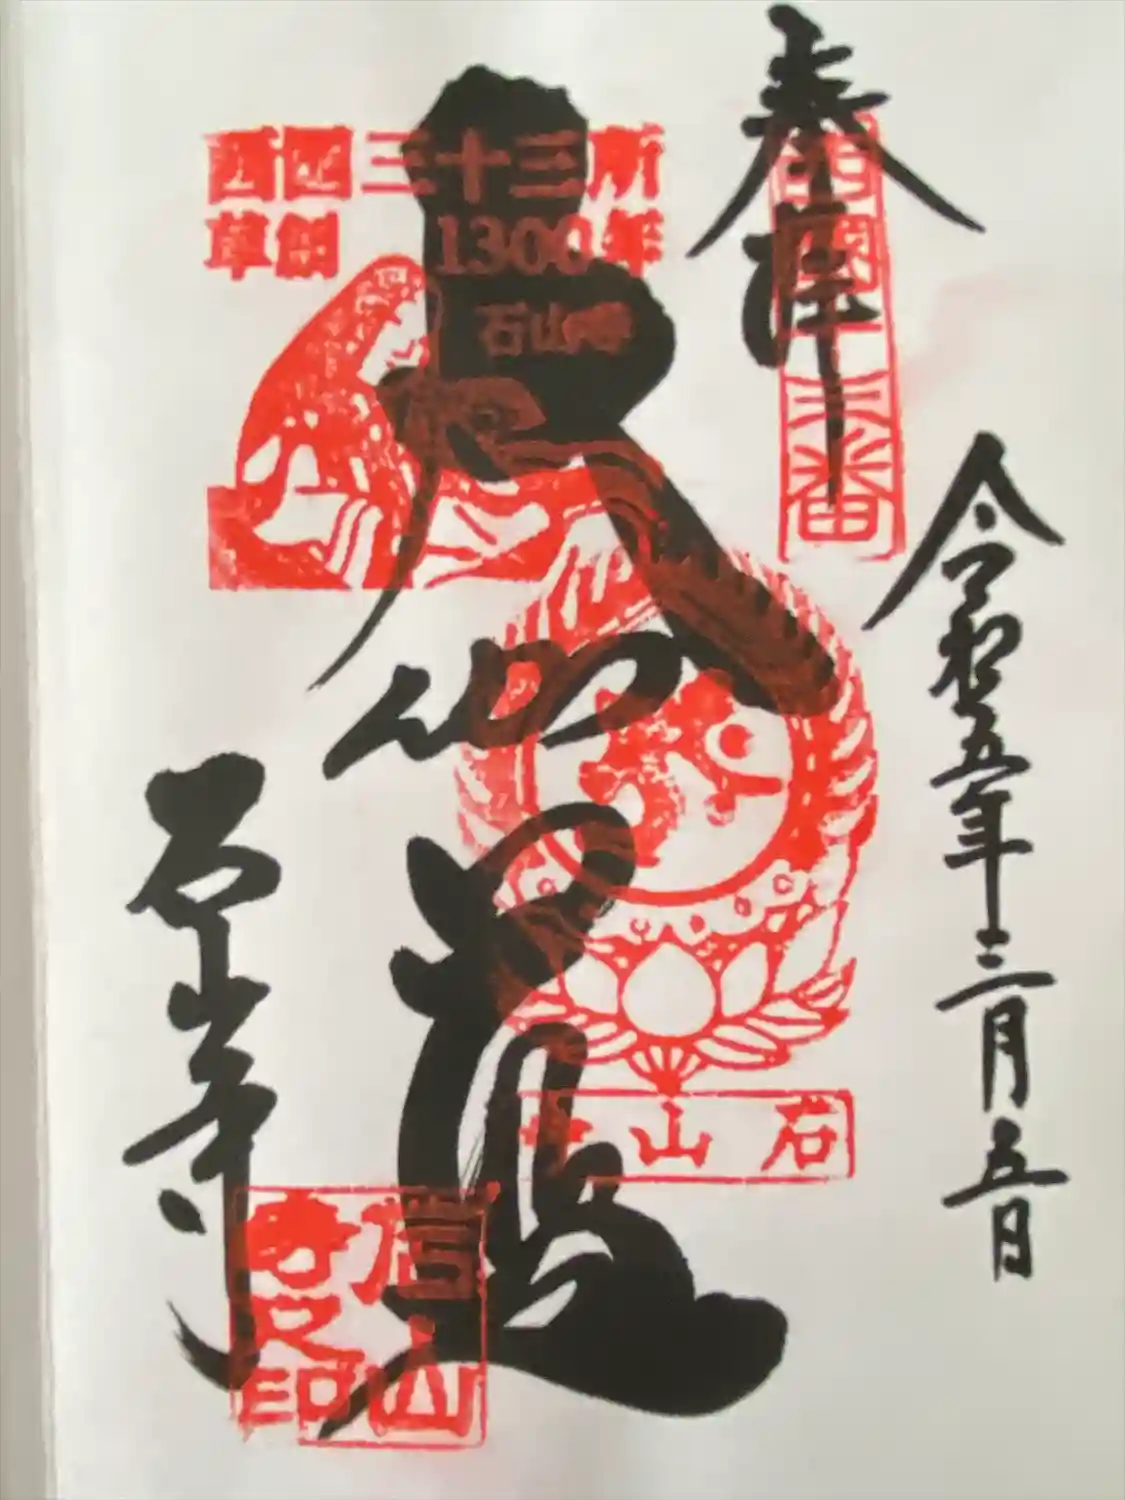 奉拝
西国十三番
令和五年三月五日
西国三十三所
草創1300年
石山寺
大伽藍
石山寺
石山寺
石山寺之印